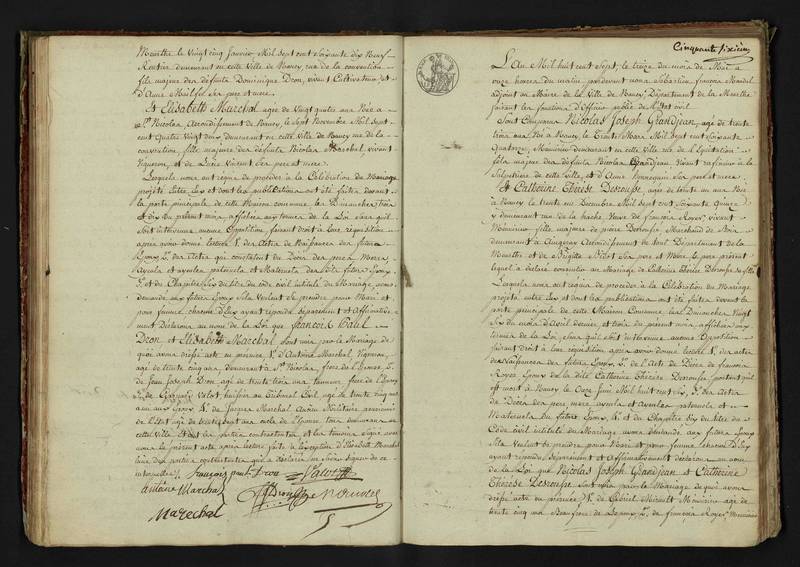 Meurthe le Vingt cinq Janvier Mil Sept cent Soixante dix Neuf
Rentier demeurant en cette Ville de Nancy, rue de la convention
fils majeur des défunts Dominique Dron, vivant Cultivateur et
d'Anne Mail ses père et mère.
Et Elisabeth Marechal agée de Vingt quatre ans Née à
St. Nicolas, Arrondissement de Nancy, le Sept Novembre Mil Sept
cent Quatre Vingt deux demeurant en cette ville de Nancy rue de la
convention, fille majeure des défunts Nicolas Marechal, vivant
Vigneron, et de Lucie Vincent Ses père et mère.
Lesquels nous ont requis de procéder à la Célébration du Mariage
projeté entre Eux et dont les publications ont été faites devant
la porte principale de cette Maison commune, les Dimanches trois
et dix du présent mois, affichées aux termes de la Loi sans qu'il
Soit intervenu aucune Opposition, faisant droit à leur réquisition
après avoir donné lecture 1°. des Actes de Naissances des futurs
Epoux 2°. des Actes qui constatent du Décès des pères Mères
Ayeuls et ayeules paternels et Maternels des dits futurs Epoux
3°. et du Chapitre Six du titre du code civil intitulé du Mariage, avons
demandé aux futurs Epoux S'ils Veulent se prendre pour Mari et
pour femme, chacun d'Eux ayant répondu Séparément et Affirmativement
Déclarons au nom de la Loi que François Paul
Dron et Elisabeth Marechal sont unis par le Mariage de
quoi avons dressé acte en présence 1°. d'Antoine Marechal, Vigneron,
agé de trente cinq ans, demeurant à St. Nicolas, frère de l'Epouse 2°.
de Jean Joseph Dron agé de trente trois ans tanneur, frère de l'Epoux
3°. de Valot, huissier au Tribunal Civil agé de trente cinq
ans aux Epoux 4°. de Jacques Marechal Ancien Militaire
de l'Etat agé de trente oncle de l'Epouse tous demeurans en
cette Ville et ont les parties contractantes et les témoins signé avec
nous le présent acte après lecture faite à l'exception d'Elisabeth Marechal
l'une des parties contractantes qui a déclaré ne savoir signer de ce
interpellée /. françois paul Dron Valot
antoine Marechal
Marechal
Cinquante sixième
L'An Mil huit cent Sept, le treize du mois de Mai à
onze heures du matin, pardevant nous Sébastien François Mandel
adjoint au Maire de la Ville de Nancy, Département de la Meurthe
faisant les fonctions d'officier public de l'état civil
Sont Comparus Nicolas Joseph Grandjean, agé de trente
trois ans Né à Nancy, le Trente Mars Mil Sept cent Soixante
Quatorze, Menuisier demeurant en cette ville rue de l'Equitation
fils majeur des défunts Nicolas Grandjean vivant rafineur à la
Salpetrière de cette ville, et d'Anne Hennequin Ses père et mère
Et Catherine Thérèse Desrousse, agée de trente un ans Née
à Nancy le trente un Décembre Mil Sept cent Soixante Quinze
y demeurant rue de la hache Veuve de François Royer, vivant
Menuisier fille majeure de pierre Desrousse, Marchand de Bois
demeurant à Arrondissement de Toul Département de la
Meurthe et de Brigitte Didot Ses père et Mère, le père présent
lequel a déclaré consentir au Mariage de Catherine Thérèse Desrousse sa fille
Lesquels nous ont requis de procéder à la Célébration du Mariage
projeté entre Eux et dont les publications ont été faites devant la
porte principale de cette Maison Commune, les Dimanches Vingt
Six du mois d'Avril dernier, et trois du présent mois affichées aux
termes de la Loi, sans qu'il soit intervenu aucune Opposition
faisant droit à leur réquisition après avoir donné lecture 1°. des actes
de Naissances des futurs Epoux 2°. de l'Acte de Décès de François
Royer Epoux de la dite Catherine Thérèse Desrousse, portant qu'il
est mort à Nancy le Onze Juin Mil huit cent Six, 3°. des Actes
de Décès des père mère, ayeuls et ayeules paternels et
Maternels du futur Epoux 4°. et du Chapitre Six du titre du
Code civil intitulé du Mariage avons demandé aux futurs Epoux
S'ils Veulent se prendre pour Mari et pour femme chacun d'Eux
ayant répondu Séparément et Affirmativement déclarons au nom
de la Loi que Nicolas Joseph Grandjean et Catherine
Thérèse Desrousse sont unis par le Mariage de quoi avons
dressé acte en présence 1°. de Gabriel Menuisier agé de
trente cinq ans Beaufrère de l'Epoux, 2°. de François Royer Menuisier